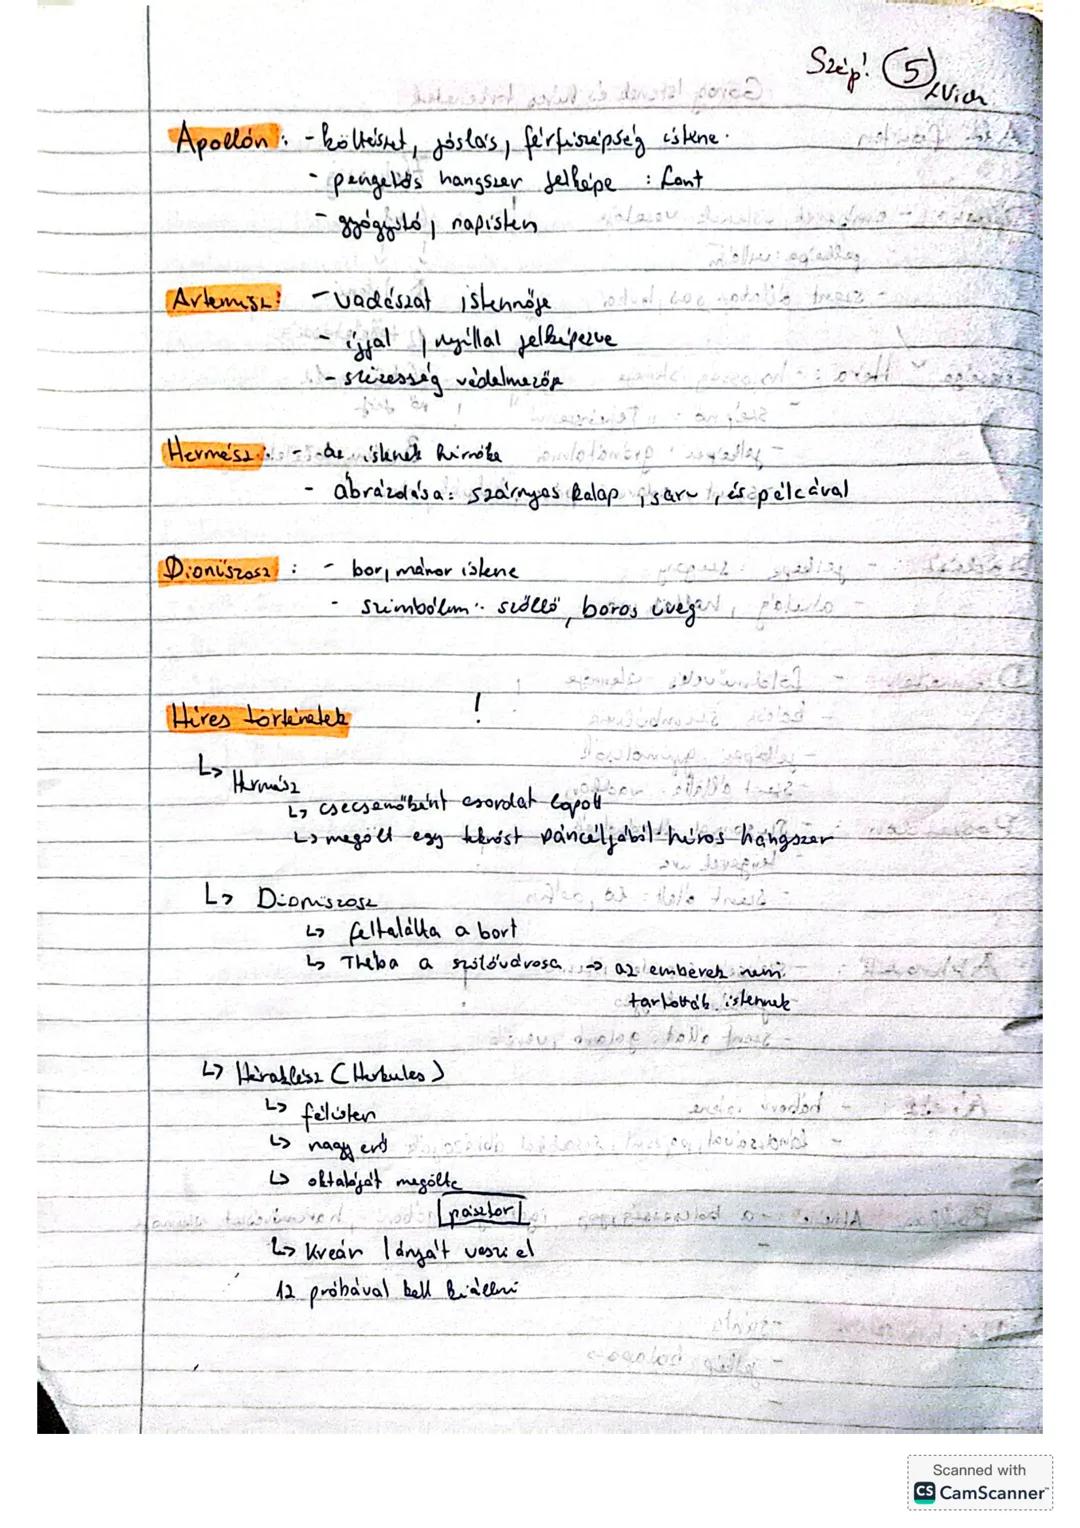 Szép! 5
Apollón: - költészet, jóslás, férfiszépség istene.
- pengetős hangszer jelképe : lant
- gyógyító, napisten
Artemisz: - vadászat istennője
- íjjal, nyíllal jelképezve
- szüzesség védelmezője
Hermész: - az istenek hírnöke
- ábrázolása: szárnyas kalap, saru, és pálcával
Dionüszosz: - bor, mámor istene
- szimbólum: szőllő, boros üveg
Híres történetek !
↳ Hermész
↳ csecsemőként csordat lopott
↳ megölt egy teknőst páncéljából húros hangszer
↳ Dioniszosz
↳ feltalálta a bort
↳ Théba a szülővárosa → az emberek nem
tartották istennek
↳ Héraklész (Herkules)
↳ félisten
↳ nagy erő
↳ oktatóját megölte
pásztor
↳ Kreón lányát veszi el
12 próbával kell kiállni
Scanned with
CS CamScanner